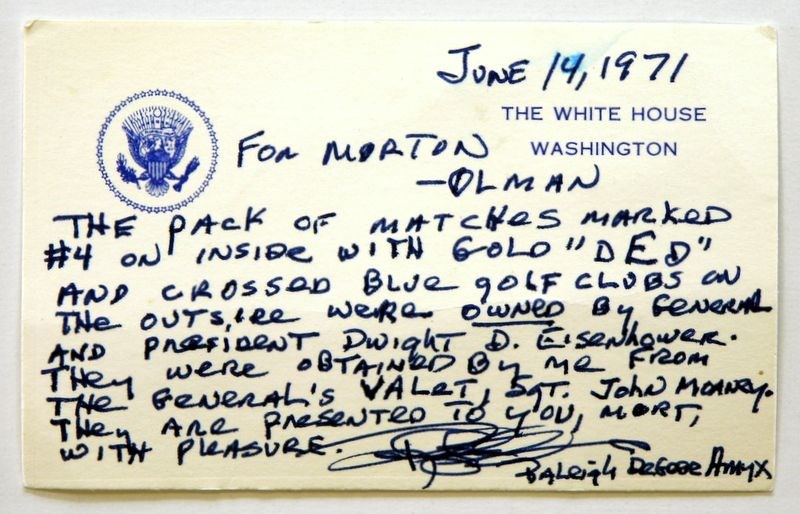 JUNE 14, 1971
THE WHITE HOUSE
WASHINGTON
FOR MORTON
-OLMAN
THE PACK OF MATCHES MARKED
#4 ON INSIDE WITH GOLD "DED"
AND CROSSED BLUE GOLF CLUBS ON
THE OUTSIDE WERE OWNED BY GENERAL
AND PRESIDENT DWIGHT D. EISENHOWER.
THEY WERE OBTAINED BY ME FROM
THE GENERAL'S VALET, SGT. JOHN MOANEY.
THEY ARE PRESENTED TO YOU, MORT,
WITH PLEASURE.
RALEIGH DEGEER AMYX